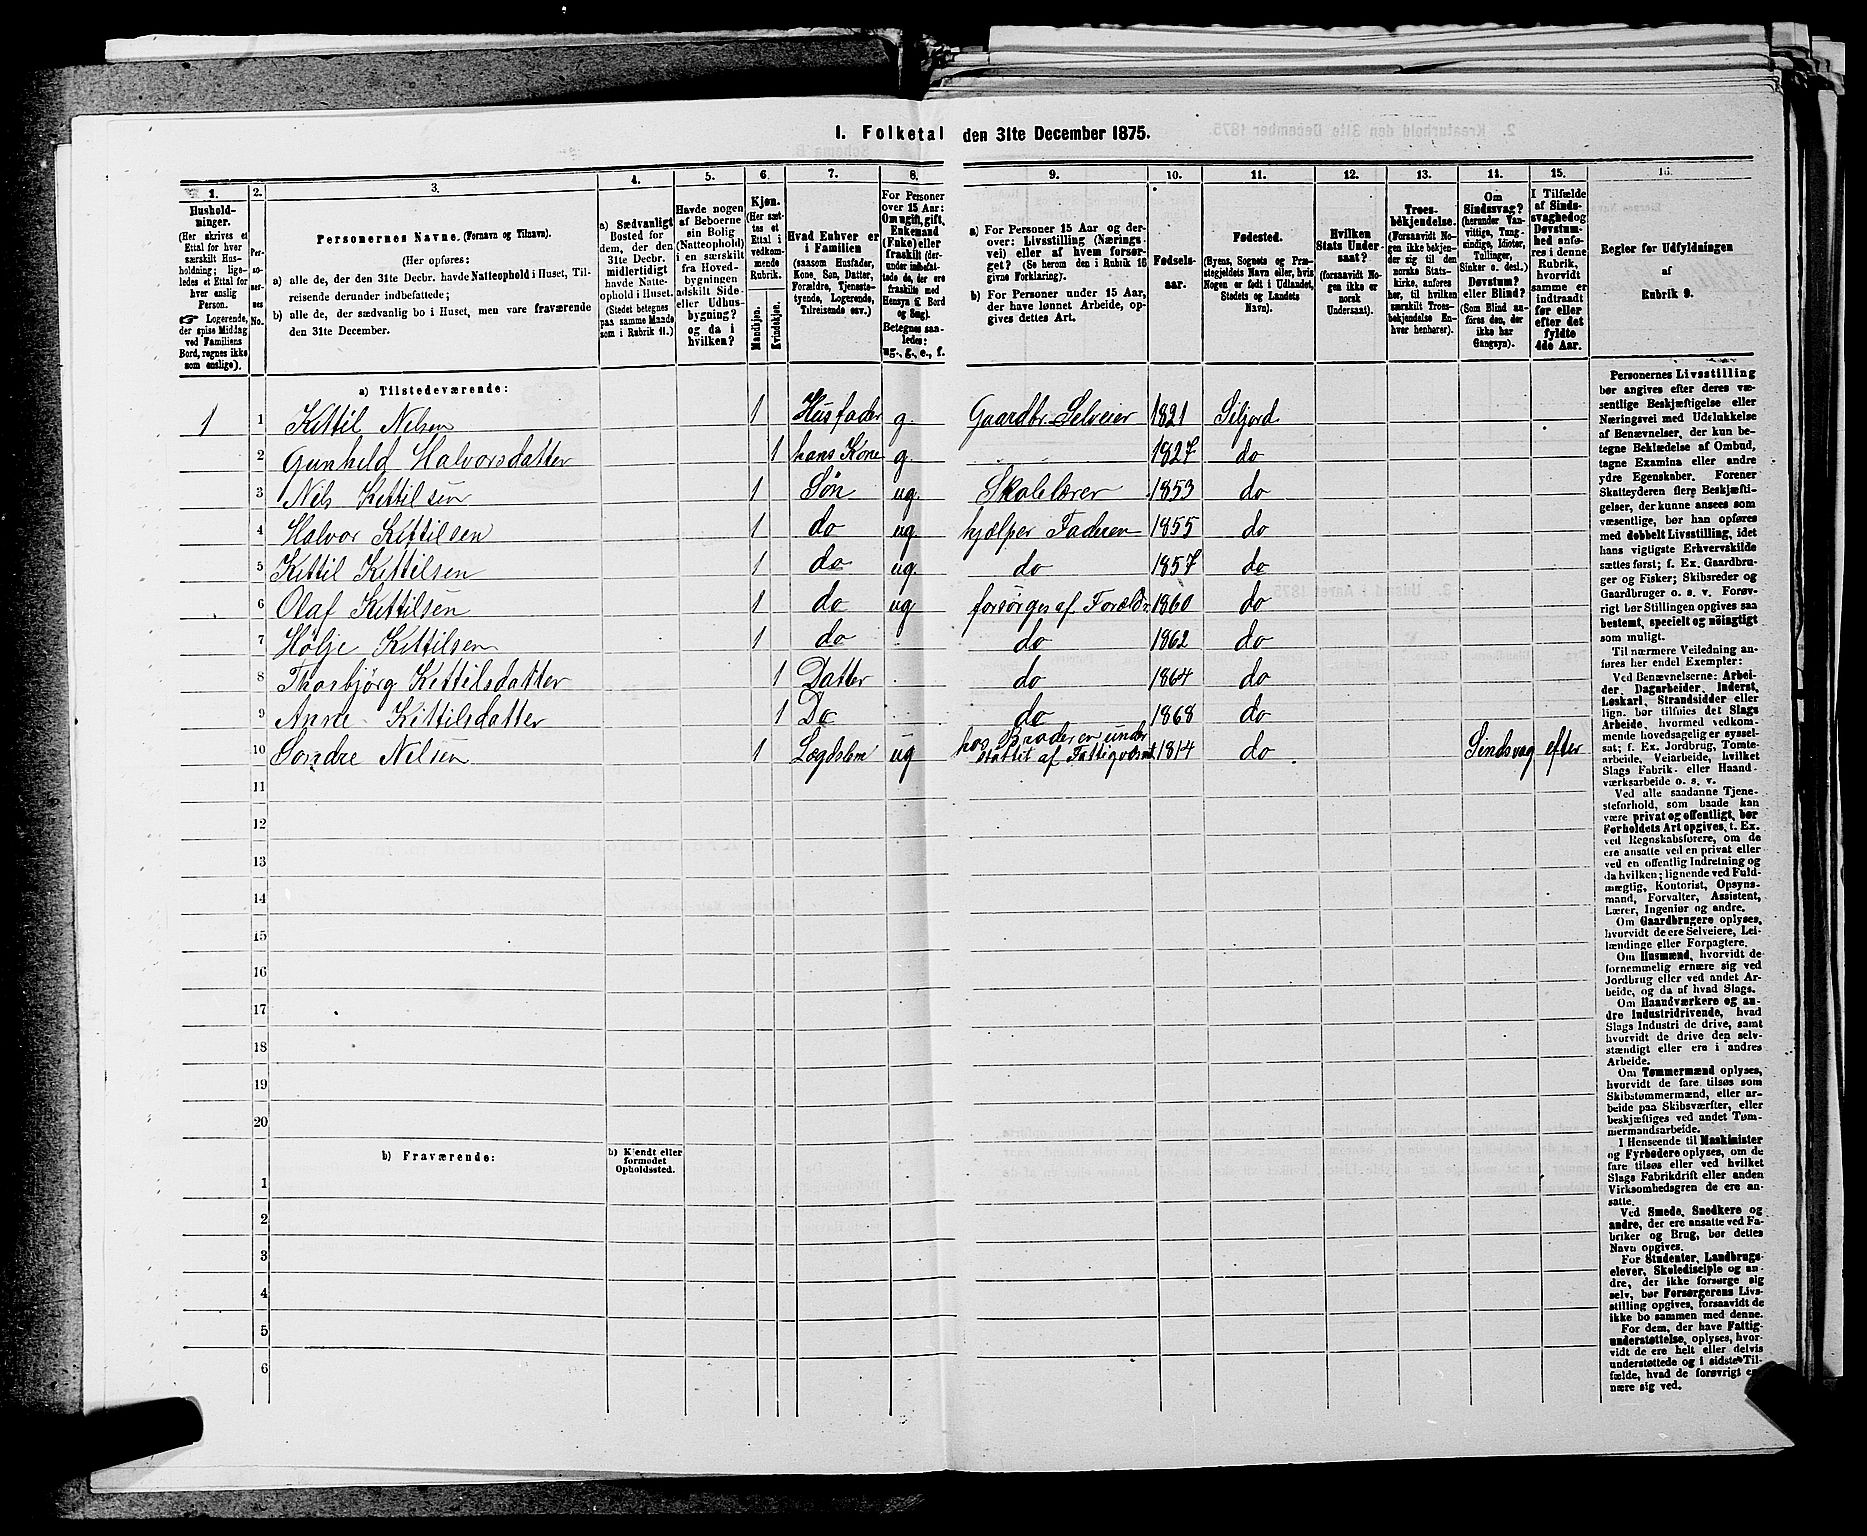 1. Folketal den 31te December 1875.
1. 2. 3. 4. 5. 6. 7. 8. 9. 10. 11. 12. 13. 14. 15. 16.
Hushold-
ninger.
(Her skrives et
Ettal for hver
særskilt Hus-
holdning; lige-
ledes et Ettal for
hver enslig
Person.
☞ Logerende,
der spise Middag
ved Familiens
Bord, regnes ikke
som enslige).
Per-
so-
ner-
nes
No.
Personernes Navne. (Fornavn og Tilnavn).
(Her opføres:
a) alle de, der den 31te Decbr. havde Natteophold i Huset, Til-
reisende derunder indbefattede;
b) alle de, der sædvanlig bo i Huset, men vare fraværende
den 31te December.
a) Sædvanligt
Bosted for
dem, der den
31te Decbr.
midlertidigt
havde Natte-
ophold i Huset.
(Stedet betegnes
paa samme Maade
som i Rubrik 11.)
Havde nogen
af Beboerne
sin Bolig
(Natteophold)
i en særskilt
fra Hoved-
bygningen
adskilt Side-
eller Udhus-
bygning?
og da i
hvilken?
Kjøn.
(Her sæt-
tes et
Ettal i
vedkom-
mende
Rubrik.
Mandkjøn.
Kvindekjøn.
Hvad Enhver er
i Familien
(saasom Husfader,
Kone, Søn, Datter,
Forældre, Tjeneste-
tyende, Logerende,
Tilreisende osv.)
For Personer
over 15 Aar:
Om ugift, gift,
Enkemand
(Enke) eller
fraskilt (der-
under indbefat-
tede de, der ere
fraskilte med
Hensyn t. Bord
og Seng).
Betegnes saa-
ledes:
ug., g., e., f.
a) For Personer 15 Aar og der-
over: Livsstilling (Nærings-
vei) eller af hvem forsør-
get? (Se herom den i Rubrik 16
givne Forklaring).
b) For Personer under 15 Aar,
der have lønnet Arbeide, op-
gives dettes Art.
Fødsels-
aar.
Fødested.
(Byens, Sognets og Præ-
stegjeldets Navn eller, hvis
Nogen er født i Udlandet,
Stedets og Landets
Navn).
Hvilken
Stats Under-
saat?
(forsaavidt No-
gen ikke er
norsk
Undersaat).
Troes-
bekjendelse.
(Forsaavidt No-
gen ikke bekjen-
der sig til den
norske Stats-
kirke, anføres
her, til hvilken
særskilt Troes-
bekjendelse En-
hver henhører).
Om
Sindssvag?
(herunder Van-
vittige, Tung-
sindige, Idioter,
Tullinger,
Sinker o. desl.)
Døvstum?
eller Blind?
(Som Blind an-
føres den, der
ikke har
Gangsyn).
I Tilfælde
af Sinds-
svaghed og
Døvstum-
hed anfø-
res i denne
Rubrik,
hvorvidt
samme er
indtraadt
før eller
efter det
fyldte
4de Aar.
Regler for Udfyldningen
af
Rubrik 9.
a) Tilstedeværende:
1 1 Kittil Nilsen 1 Husfader g. Gaardbr. Selveier 1821 Siljord
2 Gunhild Halvorsdatter 1 hans Kone g. 1827 do
3 Nils Kittilsen 1 Søn ug. Skolelærer 1853 do
4 Halvor Kittilsen 1 do ug. hjælper Faderen 1855 do
5 Kittil Kittilsen 1 do ug. do 1857 do
6 Olaf Kittilsen 1 do ug forsørges af Forældr. 1860 do
7 Hølje Kittilsen 1 do do 1862 do
8 Thorbjörg Kittilsdatter 1 Datter do 1864 do
9 Anne Kittilsdatter 1 Do do 1868 do
10 Sondre Nilsen 1 Lægdslem ug hos Broderen under
støttet af Fattigvæsnt 1814 do Sindsvag efter
11
12
13
14
15
16
17
18
19
20
b) Fraværende:
b) Kjendt eller
formodet
Opholdssted.
1
2
3
4
5
6
Personernes Livsstilling
bør angives efter deres væ-
sentlige Beskjæftigelse eller
Næringsvei med Udelukkelse
af Benævnelser, der kun be-
tegne Beklædelse af Ombud,
tagne Examina eller andre
ydre Egenskaber. Forener
Skatteyderen flere Beskjæfti-
gelser, der kunne ansees som
væsentlige, bør han opføres
med dobbelt Livsstilling, idet
hans vigtigste Erhvervskilde
sættes først; f. Ex. Gaardbru-
ger og Fisker; Skibsreder og
Gaardbruger o. s. v. Forøv-
rigt bør Stillingen opgives saa
bestemt, specielt og nöiagtigt
som muligt.
Til nærmere Veiledning an-
føres her endel Exempler:
Ved Benævnelserne: Arbei-
der, Dagarbeider, Inderst,
Løskarl, Strandsidder eller
lign. bør tilføies det Slags
Arbeide, hvormed vedkom-
mende hovedsagelig er syssel-
sat; f. Ex. Jordbrug, Tomte-
arbeide, Veiarbeide, hvilket
Slags Fabrik- eller Haand-
værksarbeide o. s. v.
Ved alle saadanne Tjene-
steforhold, som baade kan
være privat og offentligt, bør
Forholdets Art opgives, t. Ex.
ved Regnskabsførere, om de
ere ansatte ved en privat eller
ved en offentlig Indretning og
da hvilken; lignende ved Fuld-
mægtig, Kontorist, Opsyns-
mand, Forvalter, Assistent,
Lærer, Ingeniør og andre.
Om Gaardbrugere oplyses,
hvorvidt de ere Selveiere, Lei-
lændinge eller Forpagtere.
Om Husmænd, hvorvidt de
fornemmelig ernære sig ved
Jordbrug eller ved andet Ar-
beide, og da af hvad Slags.
Om Haandværkere og an-
dre Industridrivende, hvad
Slags Industri de drive, samt
hvorvidt de drive den selv-
stændigt eller ere i andres
Arbeide.
Om Tømmermænd oplyses,
hvorvidt de fare tilsøs som
Skibstømmermænd, eller ar-
beide paa Skibsværfter, eller
beskjæftiges ved andet Tøm-
mermandsarbeide.
I Henseende til Maskinister
og Fyrbødere oplyses, om de
fare tilsøs eller ved hvilket
Slags Fabrikdrift eller anden
Virksomhedsgren de ere an-
satte.
Ved Smede, Snedkere og
andre, der ere ansatte ved Fa-
briker og Brug, bør dettes
Navn opgives.
For Studenter, Landbrugs-
elever, Skoledisciple og an-
dre, der ikke forsørge sig
selv, bør Forsørgerens Livs-
stilling opgives, forsaavidt de
ikke bo sammen med denne.
For dem, der have Fattig-
understøttelse, oplyses, hvor-
vidt de ere helt eller delvis
understøttede og i sidste Til-
fælde, hvad de forøvrigt er-
nære sig ved.